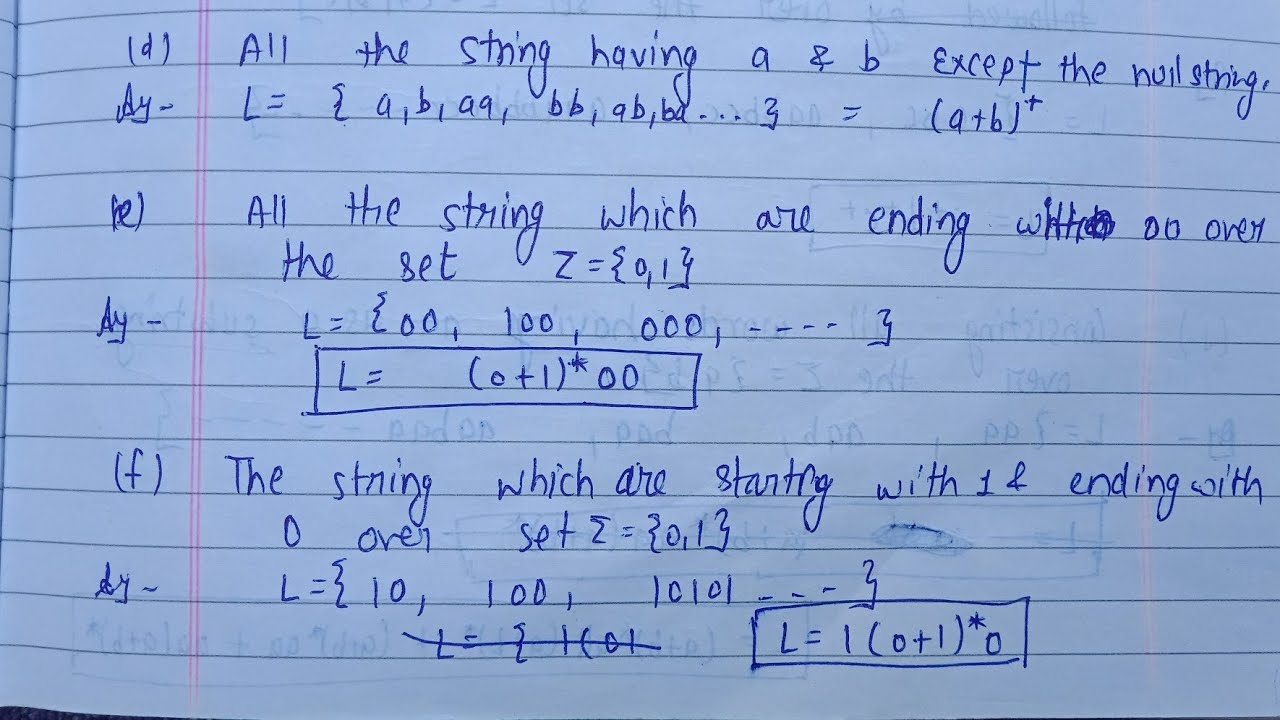 (d) All the string having a & b except the null string.
L = { a, b, aa, bb, ab, ba ... } = (a+b)⁺
(e) All the string which are ending with 00 over
the set Σ = {0,1}
L = { 00, 100, 000, ---- }
L = (0+1)*00
(f) The string which are starting with 1 & ending with
0 over set Σ = {0,1}
L = { 10, 100, 10101 --- }
L = { 1(01
L = 1(0+1)*0